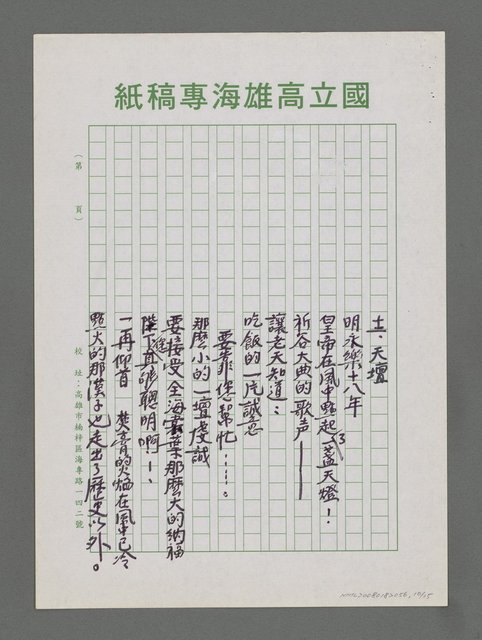 國立高雄海專稿紙
(第　頁)
校　址：高雄市楠梓區海專路一四二號
土．天壇
明永樂十八年
皇帝在風中點起了一盞天燈！
祈谷大典的歌声——
讓老天知道：
吃飯的一片誠意
要靠您幫忙……。
那麼小的一壇虔誠
要接受全海棠葉那麼大的納福
陛下真夠聰明啊！
一再仰首 焚膏的火焰在風中已冷
點火的那漢子也走出了歷史以外。